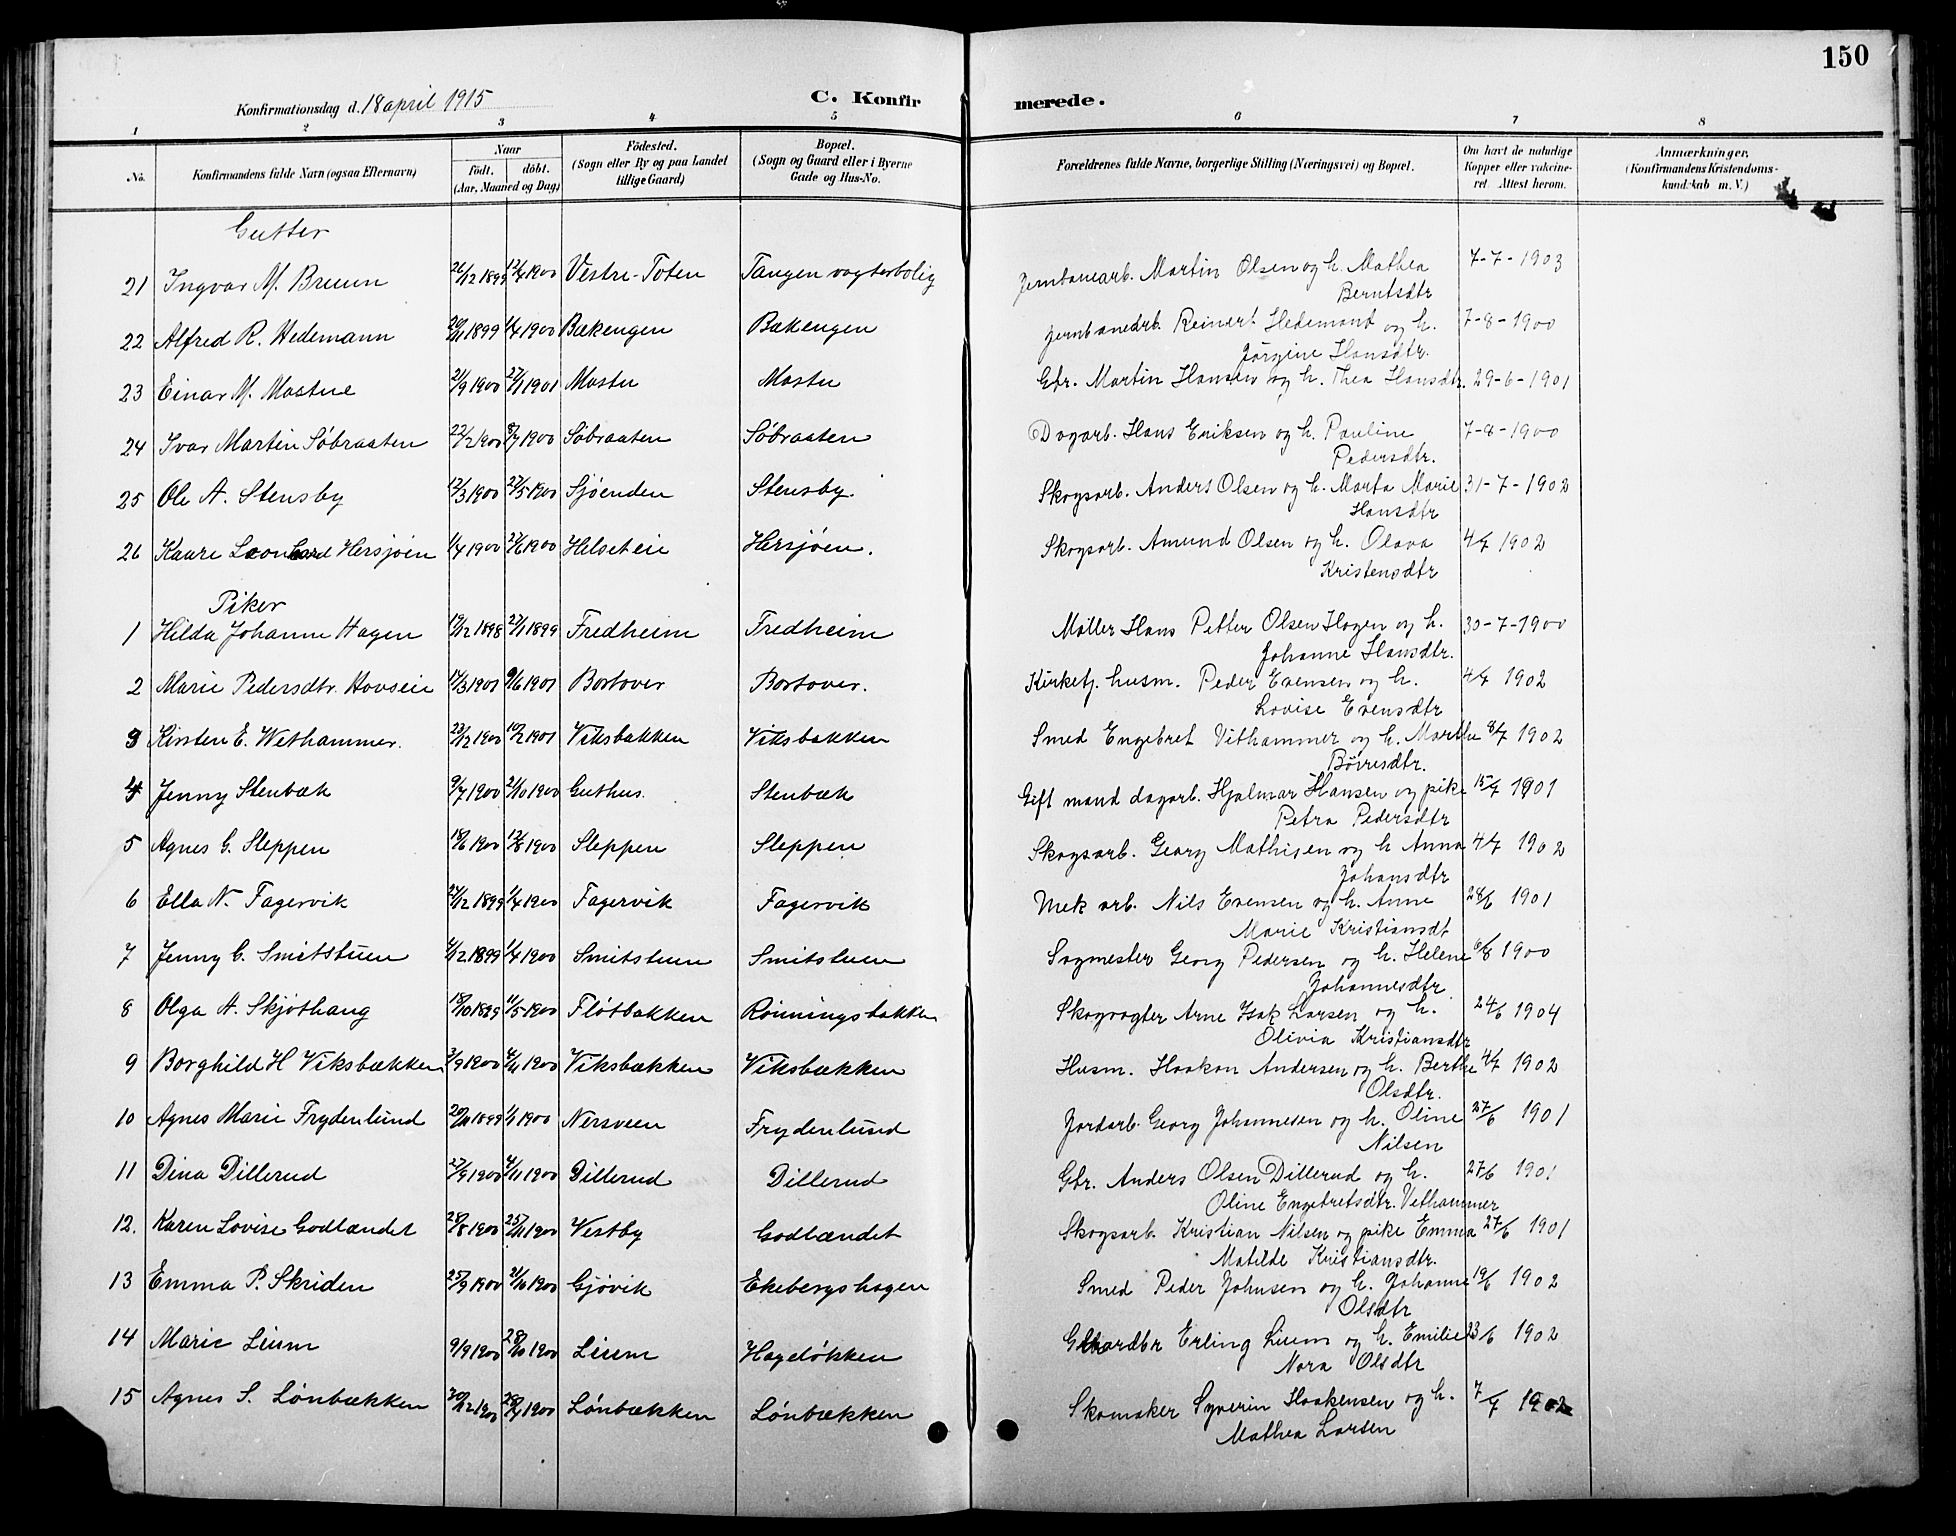 150
Konfirmationsdag d. 18 april 1915
C. Konfirmerede.
1 2 3 4 5 6 7 8
No. Konfirmandens fulde Navn (ogsaa Efternavn) Naar födt. döbt. (Aar, Maaned og Dag) Födested. (Sogn eller By og paa Landet tillige Gaard) Bopæl. (Sogn og Gaard eller i Byerne Gade og Hus-No. Forældrenes fulde Navne, borgerlige Stilling (Næringsvei) og Bopæl. Om havt de naturlige Kopper eller vakcineret. Attest herom. Anmærkninger. (Konfirmandens Kristendomskundskab m. V.)
Gutter
21 Ingvar M. Bruun 26/12 1899 12/4 1900 Vestre-Toten Tangen vogterbolig Jernbanearb. Martin Olsen og h. Mathea 7-7-1903
Berntsdtr
22 Alfred R. Hedemann 20/11 1899 1/4 1900 Bækengen Bækengen Jernbanearb. Reinert Hedemand og h. 7-8-1900
Jörgine Hansdtr.
23 Einar M. Mastue 21/9 1900 27/1 1901 Mastu Mastu Gbr. Martin Hansen og h. Thea Hansdtr. 29-6-1901
24 Ivar Martin Söbraaten 22/2 1900 8/7 1900 Söbraaten Söbraaten Dagarb. Hans Eriksen og h. Pauline 7-8-1900
Pedersdtr.
25 Ole A. Stensby 12/3 1900 27/5 1900 Sjöenden Stensby. Skogsarb. Anders Olsen og h. Marta Marie 31-7-1902
Hansdtr
26 Kaare Leonhard Hersjöen 1/4 1900 24/6 1900 Helseteie Hersjöen. Skogsarb. Amund Olsen og h. Olava 4/7 1902
Kristensdtr
Piker
1 Hilda Johanne Hagen 19/12 1898 27/1 1899 Fredheim Fredheim Möller Hans Petter Olsen Hagen og h. 30-7-1900
Johanne Hansdtr.
2 Marie Pedersdtr. Hovseie 17/3 1901 9/6 1901 Bortover Bortover. Kirketj. husm. Peder Evensen og h. 4/7 1902
Lovise Evensdtr
3 Kirsten E. Wethammer. 23/12 1900 10/2 1901 Viksbakken Viksbakken Smed Engebret Vethammer og h. Marthe 8/7 1902
4 Jenny Stenbæk 9/7 1900 21/10 1900 Guthus. Stenbæk Gift mand dagarb. Hjalmar Hansen og pike 15/7 1901
Petra Pedersdtr
5 Agnes G. Sleppen 18/6 1900 12/8 1900 Sleppen Sleppen Skogsarb. Georg Mathisen og h Anna 4/7 1902
Johansdtr
6 Ella N. Fagervik 27/12 1899 1/4 1900 Fagervik Fagervik Mek arb. Nils Evensen og h. Anne 28/6 1901
Marie Kristiansdt
7 Jenny G. Smitstuen 4/12 1899 1/4 1900 Smitstuen Smitstuen Sagmester Georg Pedersen og h. Helene 6/8 1900
Johannesdtr
8 Olga A. Skjöthaug 18/10 1899 11/5 1900 Flötbakken Rönningsbakken Skogvogter Arne Isak Larsen og h. 24/6 1904
Olivia Kristiansdtr
9 Borghild H Viksbækken 3/9 1900 4/11 1900 Viksbækken Viksbækken Husm. Haakon Andersen og h. Berthe 4/7 1902
Olsdtr.
10 Agnes Marie Frydenlund 20/11 1899 1/1 1900 Nersveen Frydenlund Jordarb. Georg Johannesen og h. Oline 27/6 1901
Nilsen
11 Dina Dillerud 27/9 1900 4/11 1900 Dillerud Dillerud Gbr. Anders Olsen Dillerud og h. 27/6 1901
Oline Engebretsdtr. Vethammer
12. Karen Lovise Godlændet 28/8 1900 25/11 1900 Vestby Godlændet Skogsarb. Kristian Nilsen og pike Emma 27/6 1901
Matilde Kristiansdtr.
13 Emma P. Skriden 25/9 1900 21/10 1900 Gjövik Ekebergshagen Smed Peder Johnsen og h. Johanne 19/6 1902
Olsdtr
14 Marie Lium 9/9 1900 28/10 1900 Lium Hagelökken Gaardbr Erling Lium og h. Emilie 23/6 1902
Nora Olsdtr
15 Agnes S. Lönbækken 30/12 1900 Lönbækken Lönbækken Skomaker Syverin Haakensen og h. 7/7 1902
Mathea Larsen